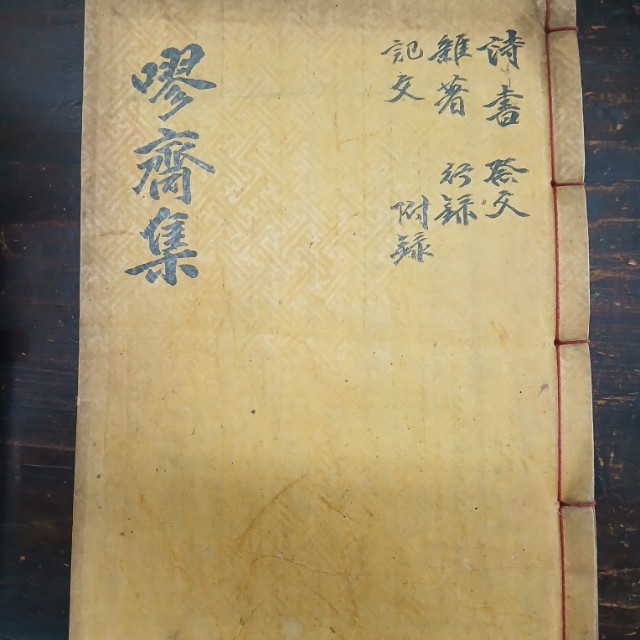 詩書 祭文
雜著 行録
記文 附録
嘐齋集